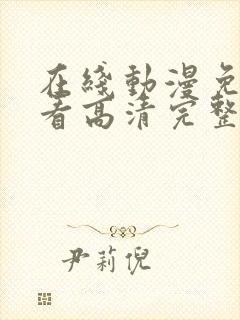 在綫動漫免
看高清完整
尹莉倪